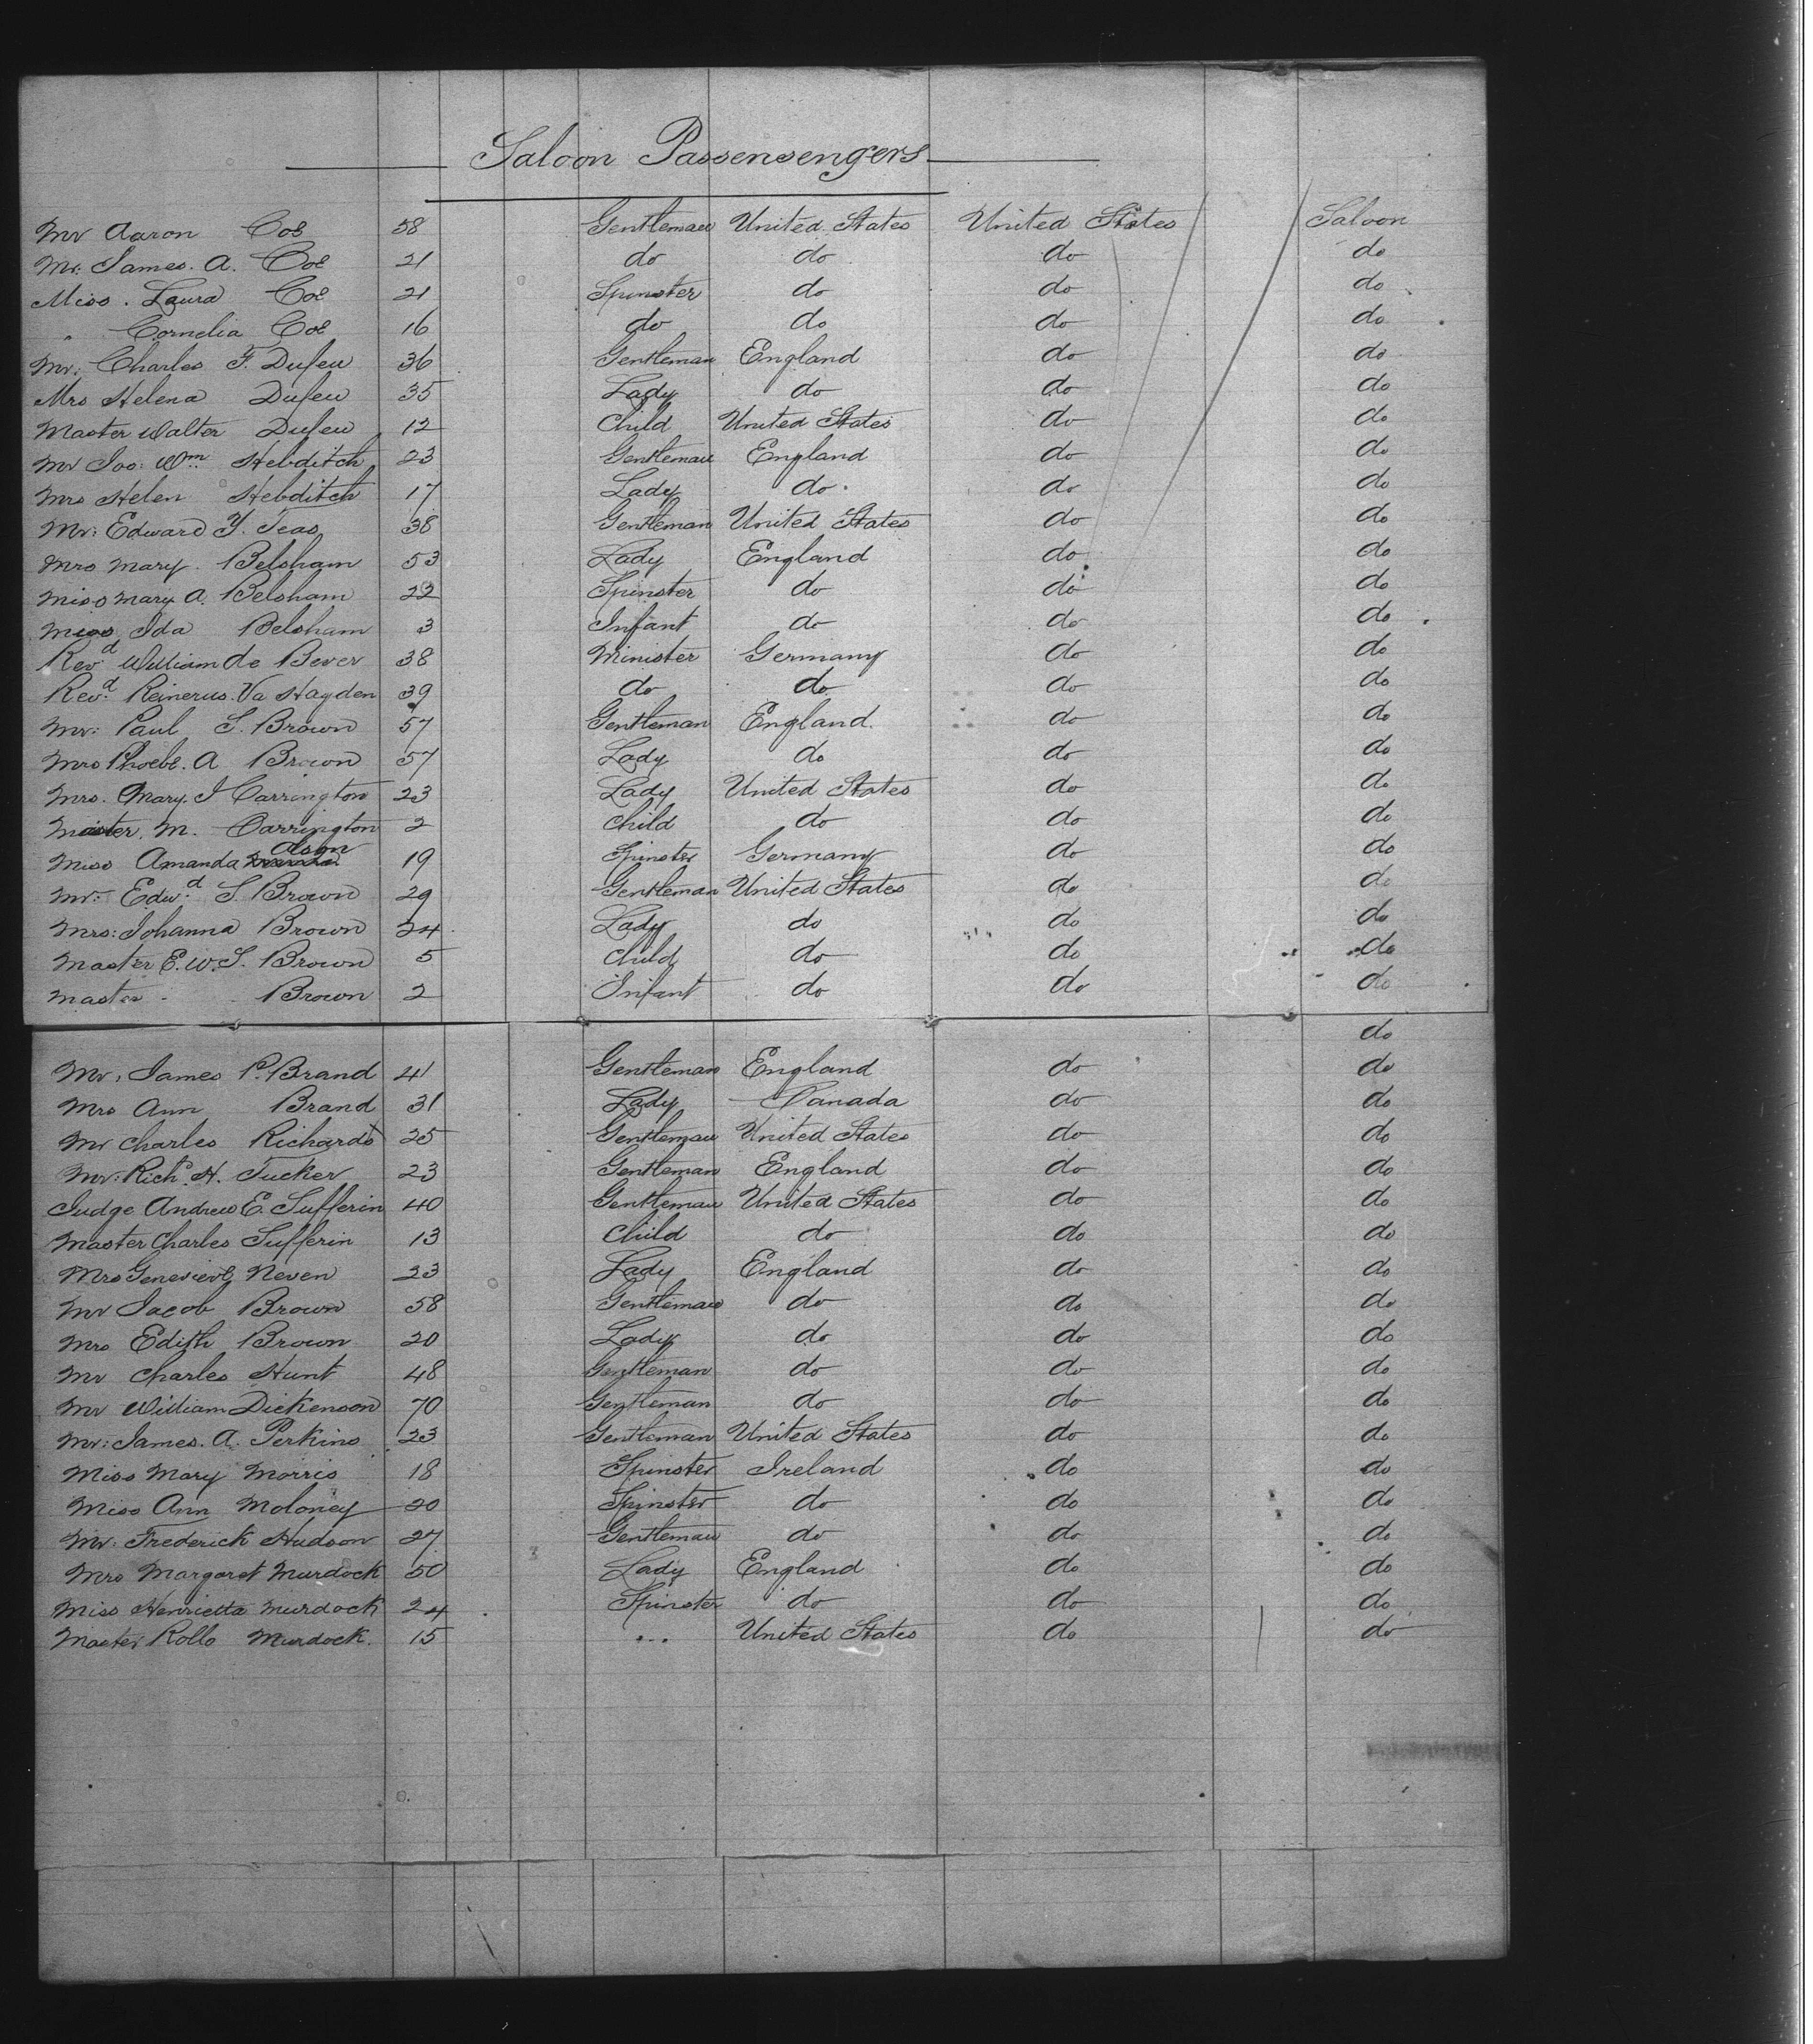 Saloon Passensengers
Mr Aaron Coe 58 Gentleman United States United States Saloon
Mr: James. A. Coe 21 do do do do
Miss. Laura Coe 21 Spinster do do do
" Cornelia Coe 16 do do do do
Mr: Charles F. Dufeu 36 Gentleman England do do
Mrs Helena Dufeu 35 Lady do do do
Master Walter Dufeu 12 Child United States do do
Mr Jos: Wm Hebditch 23 Gentleman England do do
Mrs Helen Hebditch 17 Lady do do do
Mr: Edward Y. Teas 38 Gentleman United States do do
Mrs Mary Belsham 53 Lady England do do
Miss Mary A. Belsham 22 Spinster do do do
Miss Ida Belsham 3 Infant do do do
Revd William de Bever 38 Minister Germany do do
Revd Reinerus. Va Hayden 39 do do do do
Mr: Paul S. Brown 57 Gentleman England do do
Mrs Phoebe. A Brown 57 Lady do do do
Mrs. Mary. J Carrington 23 Lady United States do do
Master. M. Carrington 2 Child do do do
Miss Amanda Olson 19 Spinster Germany do do
Mr: Edwd S. Brown 29 Gentleman United States do do
Mrs: Johanna Brown 24 Lady do do do
Master E. W. S. Brown 5 Child do do do
Master - Brown 2 Infant do do do
do
Mr, James P. Brand 41 Gentleman England do do
Mrs Ann Brand 31 Lady Canada do do
Mr Charles Richards 25 Gentleman United States do do
Mr: Richd. H. Tucker 23 Gentleman England do do
Judge Andrew E. Sufferin 40 Gentleman United States do do
Master Charles Sufferin 13 Child do do do
Mrs Genevieve Neven 23 Lady England do do
Mr Jacob Brown 58 Gentleman do do do
Mrs Edith Brown 20 Lady do do do
Mr Charles Hunt 48 Gentleman do do do
Mr William Dickenson 70 Gentleman do do do
Mr: James. A. Perkins 23 Gentleman United States do do
Miss Mary Morris 18 Spinster Ireland do do
Miss Ann Moloney 20 Spinster do do do
Mr: Frederick Hudson 27 Gentleman do do do
Mrs Margaret Murdock 50 Lady England do do
Miss Henrietta Murdock 24 Spinster do do do
Master Rollo Murdock. 15 ... United States do do